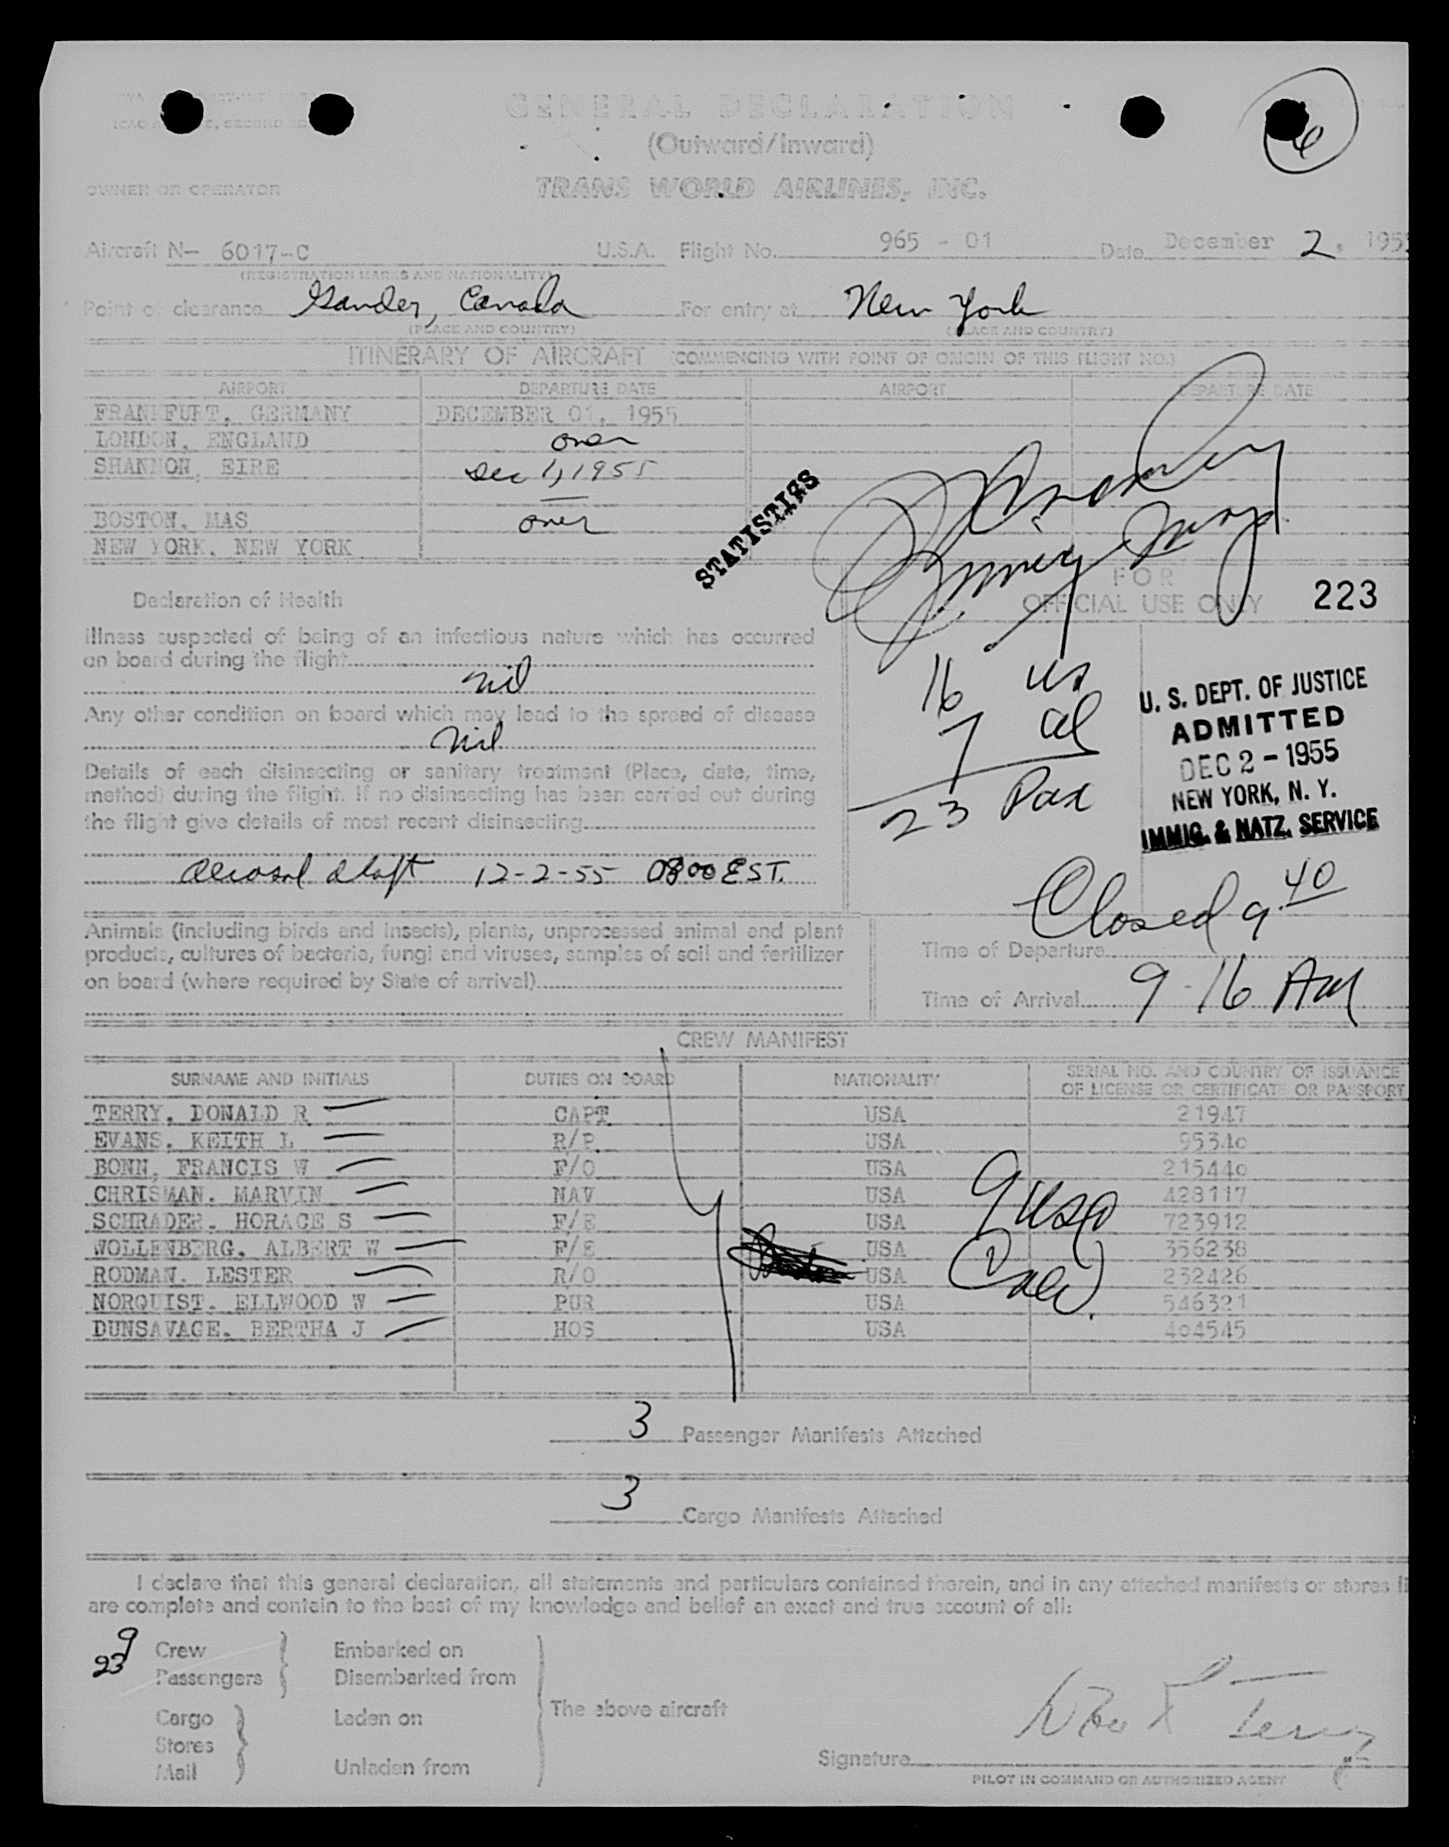 GENERAL DECLARATION
6
(Outward/Inward)
OWNER OR OPERATOR TRANS WORLD AIRLINES, INC.
Aircraft N- 6017-C U.S.A. Flight No. 965 - 01 Date December 2, 195
(REGISTRATION MARKS AND NATIONALITY)
Point of clearance Gander, Canada For entry at New York
(PLACE AND COUNTRY) (PLACE AND COUNTRY)
ITINERARY OF AIRCRAFT (COMMENCING WITH POINT OF ORIGIN OF THIS FLIGHT NO.)
AIRPORT DEPARTURE DATE AIRPORT DEPARTURE DATE
FRANKFURT, GERMANY DECEMBER 01, 1955
LONDON, ENGLAND over
SHANNON, EIRE Dec 1, 1955
BOSTON, MAS over
NEW YORK, NEW YORK
STATISTICS
FOR
OFFICIAL USE ONLY 223
Declaration of Health
Illness suspected of being of an infectious nature which has occurred
on board during the flight
nil
Any other condition on board which may lead to the spread of disease
nil
Details of each disinsecting or sanitary treatment (Place, date, time,
method) during the flight. If no disinsecting has been carried out during
the flight give details of most recent disinsecting
aerosol 12-2-55 0800 EST.
16 us
7 al
23 Pax
U. S. DEPT. OF JUSTICE
ADMITTED
DEC 2 - 1955
NEW YORK, N. Y.
IMMIG. & NATZ. SERVICE
Closed 9 40
Animals (including birds and insects), plants, unprocessed animal and plant
products, cultures of bacteria, fungi and viruses, samples of soil and fertilizer
on board (where required by State of arrival)
Time of Departure
Time of Arrival 9-16 AM
CREW MANIFEST
SURNAME AND INITIALS DUTIES ON BOARD NATIONALITY SERIAL NO. AND COUNTRY OF ISSUANCE
OF LICENSE OR CERTIFICATE OR PASSPORT
TERRY, DONALD R CAPT USA 21947
EVANS, KEITH L R/P USA 95340
BONN, FRANCIS W F/O USA 215440
CHRISMAN, MARVIN NAV USA 428117
SCHRADER, HORACE S F/E USA 723912
WOLLENBERG, ALBERT W F/E USA 356238
RODMAN, LESTER R/O USA 232426
NORQUIST, ELLWOOD W PUR USA 546321
DUNSAVAGE, BERTHA J HOS USA 404545
9 USC
Crew
3 Passenger Manifests Attached
3 Cargo Manifests Attached
I declare that this general declaration, all statements and particulars contained therein, and in any attached manifests or stores li
are complete and contain to the best of my knowledge and belief an exact and true account of all:
9 Crew Embarked on
23 Passengers Disembarked from
The above aircraft
Cargo Laden on
Stores
Mail Unladen from
Signature
PILOT IN COMMAND OR AUTHORIZED AGENT